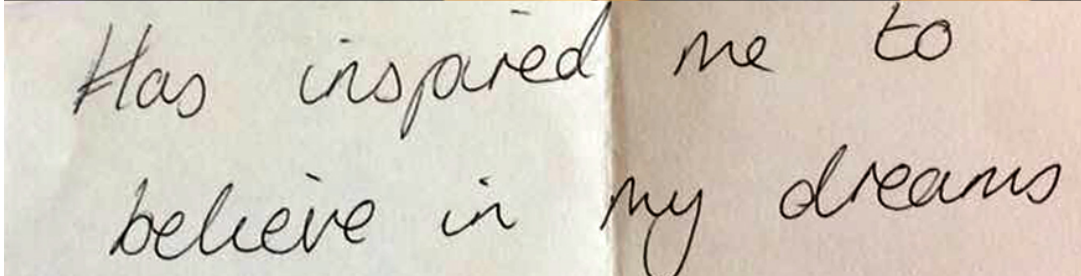 Has inspired me to
believe in my dreams